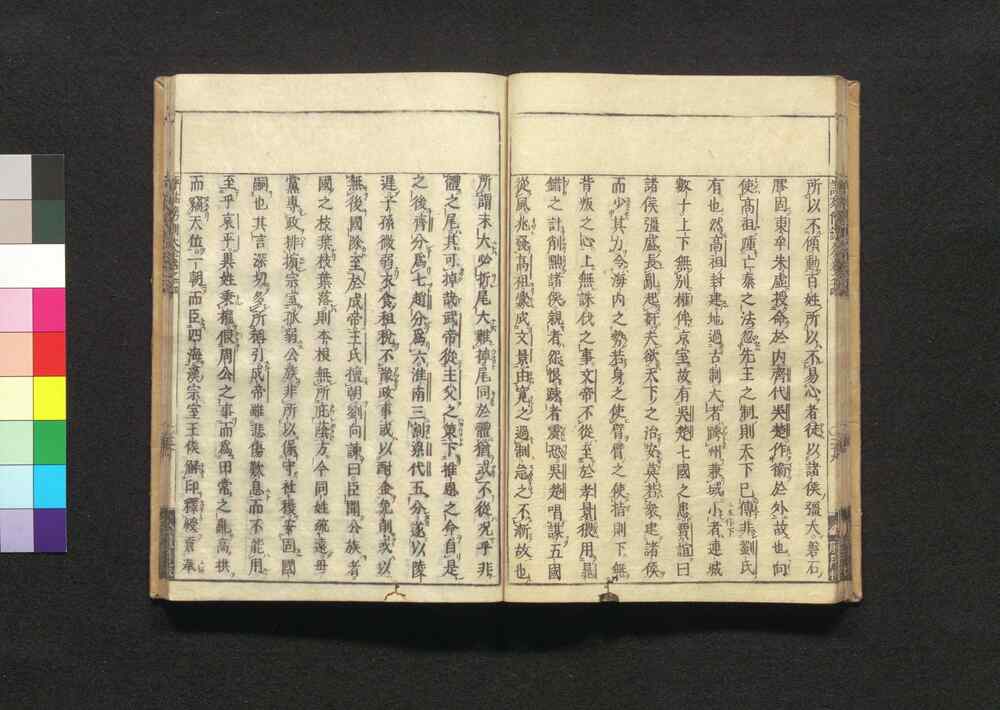 所以不傾動百姓所以不易心者徒以諸侯彊大磐石
膠固東牟朱虛授命於内齊代吳楚作衞於外故也向
使高祖踵亡秦之法忽先王之制則天下已傳非劉氏
有也然高祖封建地過古制大者跨州兼域小者連城
數十上下無別權侔京室故有吳楚七國之患賈誼曰
諸侯彊盛長亂起奸夫欲天下之治安莫若衆建諸侯
而少其力令海内之勢若身之使臂臂之使指則下無
背叛之心上無誅伐之事文帝不從至於孝景猥用晁
錯之計削黜諸侯親者怨恨疎者震恐吳楚唱謀五國
從風兆發高祖釁成文景由寛之過制急之不漸故也
所謂末大必折尾大難掉尾同於體猶或不從況乎非
體之尾其可掉哉武帝從主父之策下推恩之令自是
之後齊分爲七趙分爲六淮南三割梁代五分遂以陵
遲子孫微弱衣食租税不豫政事或以酎金免削或以
無後國除至於成帝王氏擅朝劉向諫曰臣聞公族者
國之枝葉枝葉落則本根無所庇蔭方今同姓疏遠母
黨專政排擯宗室孤弱公族非所以保守社稷安固國
嗣也其言深切多所稱引成帝雖悲傷歎息而不能用
至乎哀平異姓秉權假周公之事而爲田常之亂高拱
而竊天位一朝而臣四海漢宗室王侯解印釋綬貢奉